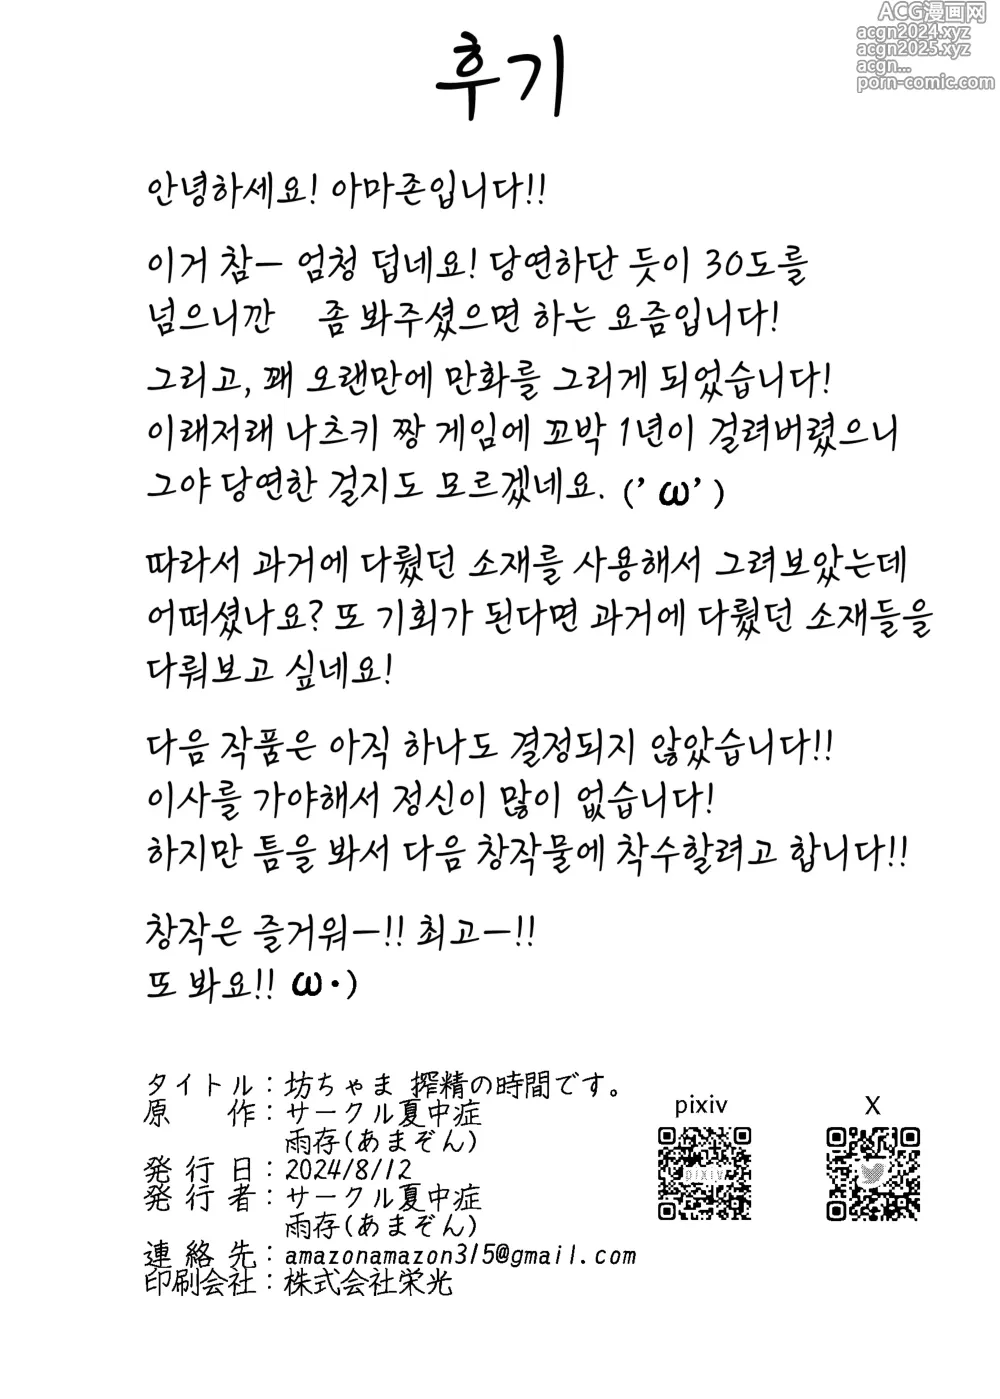 ACG漫画网
acgn2024.xyz
acgn2025.xyz
acgn...
porn-comic.com
후기
안녕하세요! 아마존입니다!!
이거 참ー 엄청 덥네요! 당연하단 듯이 30도를
넘으니깐 좀 봐주셨으면 하는 요즘입니다!
그리고, 꽤 오랜만에 만화를 그리게 되었습니다!
이래저래 나츠키 짱 게임에 꼬박 1년이 걸려버렸으니
그야 당연한 걸지도 모르겠네요. (’ω’)
따라서 과거에 다뤘던 소재를 사용해서 그려보았는데
어떠셨나요? 또 기회가 된다면 과거에 다뤘던 소재들을
다뤄보고 싶네요!
다음 작품은 아직 하나도 결정되지 않았습니다!!
이사를 가야해서 정신이 많이 없습니다!
하지만 틈을 봐서 다음 창작물에 착수할려고 합니다!!
창작은 즐거워ー!! 최고ー!!
또 봐요!! ω・)
タイトル：坊ちゃま 搾精の時間です。
原　　作：サークル夏中症
雨存(あまぞん)
発 行 日：2024/8/12
発 行 者：サークル夏中症
雨存(あまぞん)
連 絡 先：amazonamazon315@gmail.com
印刷会社：株式会社栄光
pixiv
X
pixiv